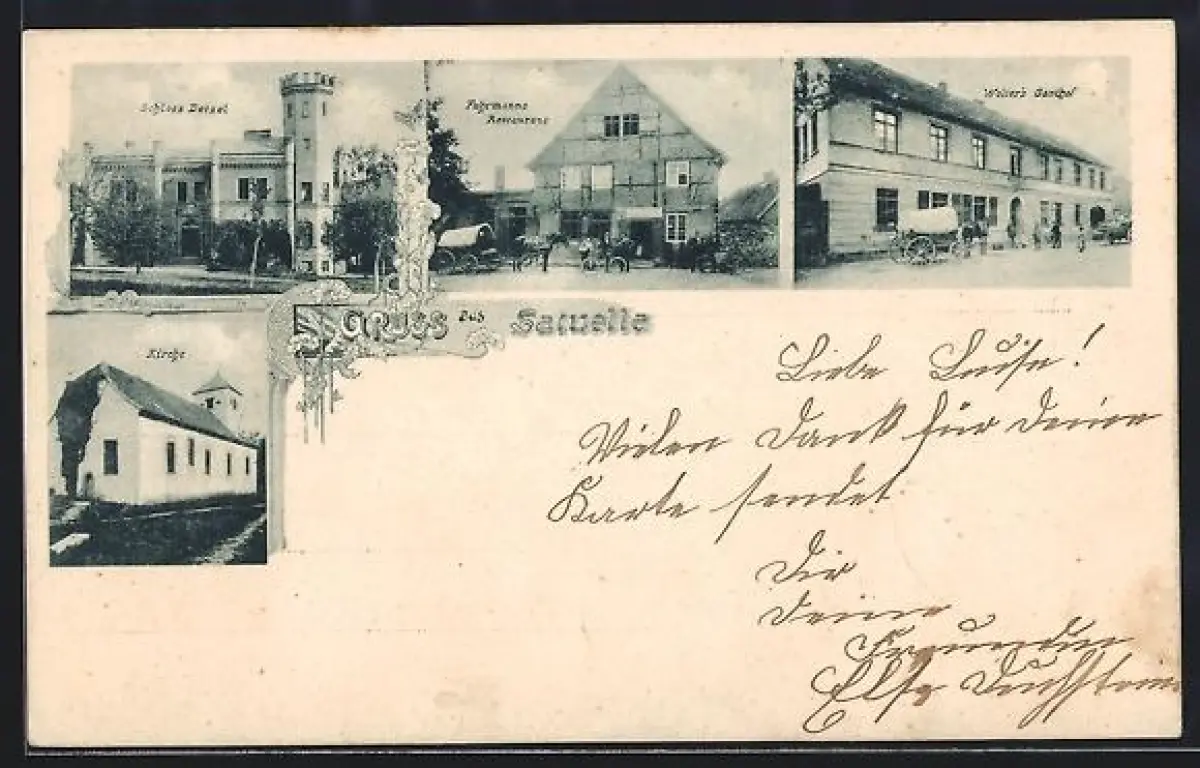 Schloss Detzel
Fuhrmanns
Restaurant
Wolter's Gasthof
Gruss aus Satuelle
Kirche
Liebe Luise!
Vielen Dank für Deine
Karte sendet
Dir
Deine
Freundin
Else